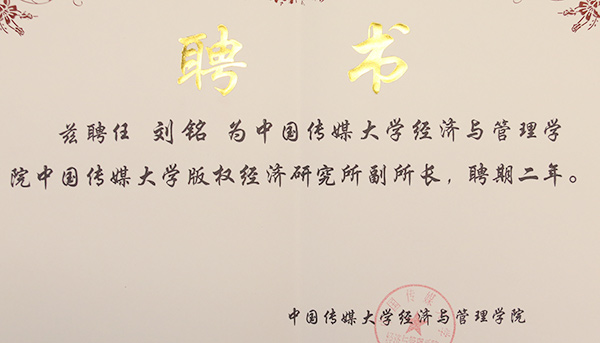 聘 书
兹聘任 刘铭 为中国传媒大学经济与管理学
院中国传媒大学版权经济研究所副所长，聘期二年。
中国传媒大学经济与管理学院